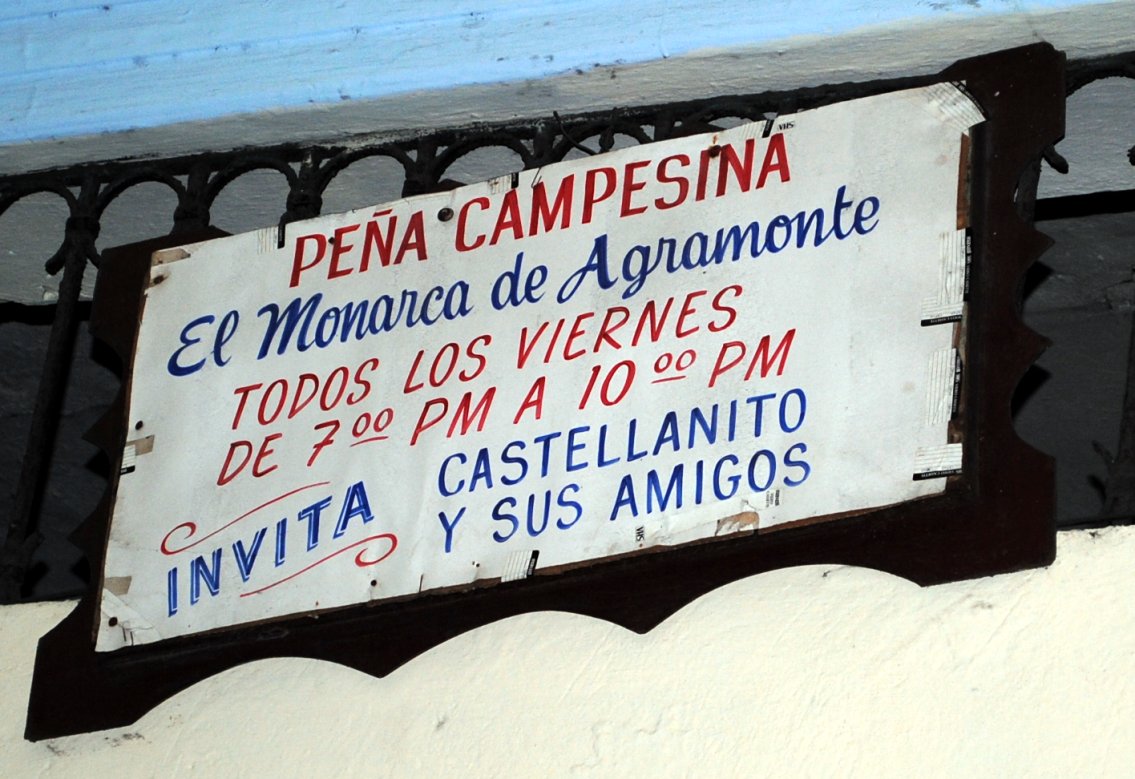 PEÑA CAMPESINA
El Monarca de Agramonte
TODOS LOS VIERNES
DE 7:00 PM A 10:00 PM
INVITA
CASTELLANITO
Y SUS AMIGOS
VHS
VHS